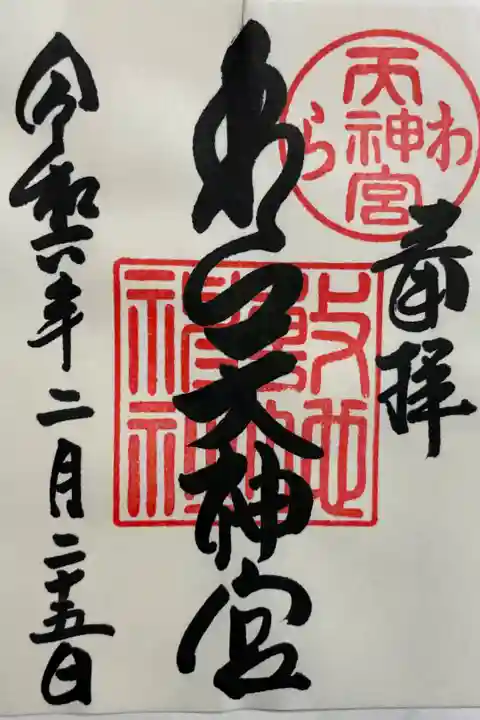 わら天神宮
奉拝
わら天神宮
敷地神社
令和六年二月二十五日